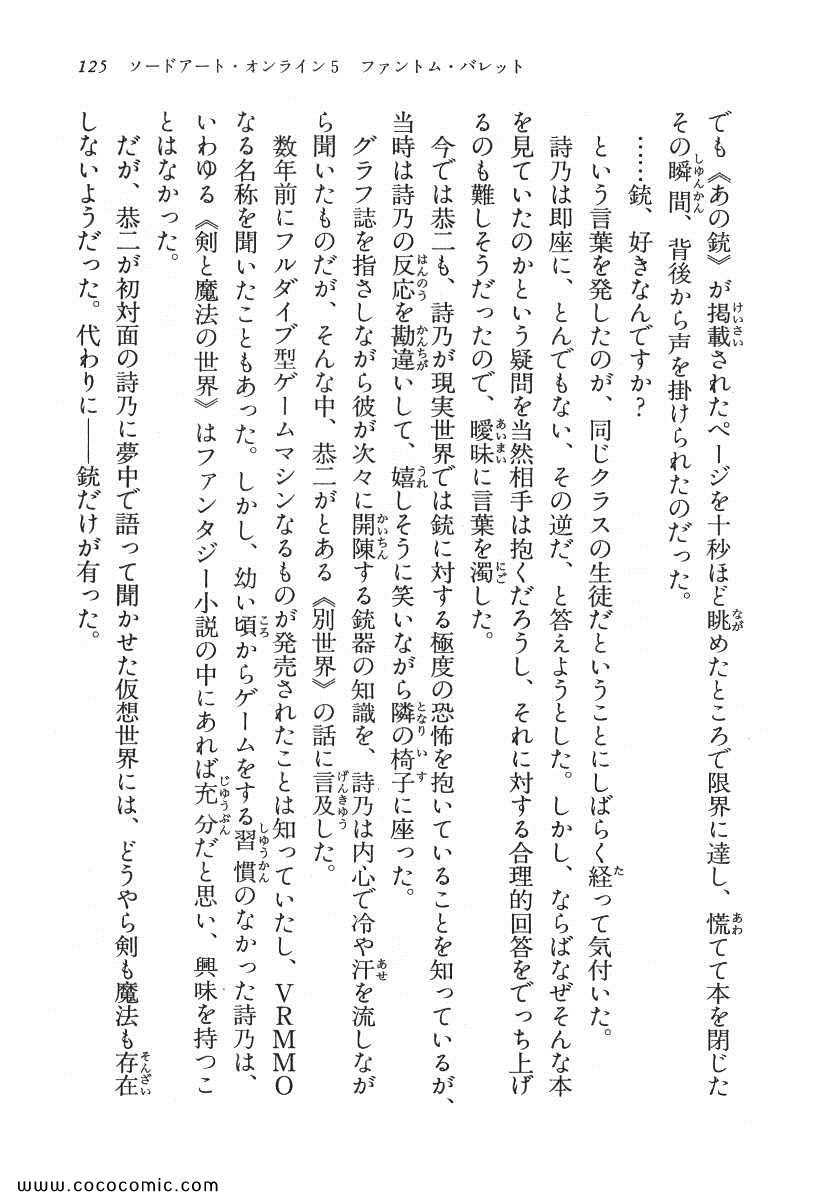 125　ソードアート・オンライン5　ファントム・バレット
でも《あの銃》が掲載されたページを十秒ほど眺めたところで限界に達し、慌てて本を閉じた
その瞬間、背後から声を掛けられたのだった。
……銃、好きなんですか？
という言葉を発したのが、同じクラスの生徒だということにしばらく経って気付いた。
詩乃は即座に、とんでもない、その逆だ、と答えようとした。しかし、ならばなぜそんな本
を見ていたのかという疑問を当然相手は抱くだろうし、それに対する合理的回答をでっち上げ
るのも難しそうだったので、曖昧に言葉を濁した。
今では恭二も、詩乃が現実世界では銃に対する極度の恐怖を抱いていることを知っているが、
当時は詩乃の反応を勘違いして、嬉しそうに笑いながら隣の椅子に座った。
グラフ誌を指さしながら彼が次々に開陳する銃器の知識を、詩乃は内心で冷や汗を流しなが
ら聞いたものだが、そんな中、恭二がとある《別世界》の話に言及した。
数年前にフルダイブ型ゲームマシンなるものが発売されたことは知っていたし、VRMMO
なる名称を聞いたこともあった。しかし、幼い頃からゲームをする習慣のなかった詩乃は、
いわゆる《剣と魔法の世界》はファンタジー小説の中にあれば充分だと思い、興味を持つこ
とはなかった。
だが、恭二が初対面の詩乃に夢中で語って聞かせた仮想世界には、どうやら剣も魔法も存在
しないようだった。代わりに――銃だけが有った。
www.cococomic.com